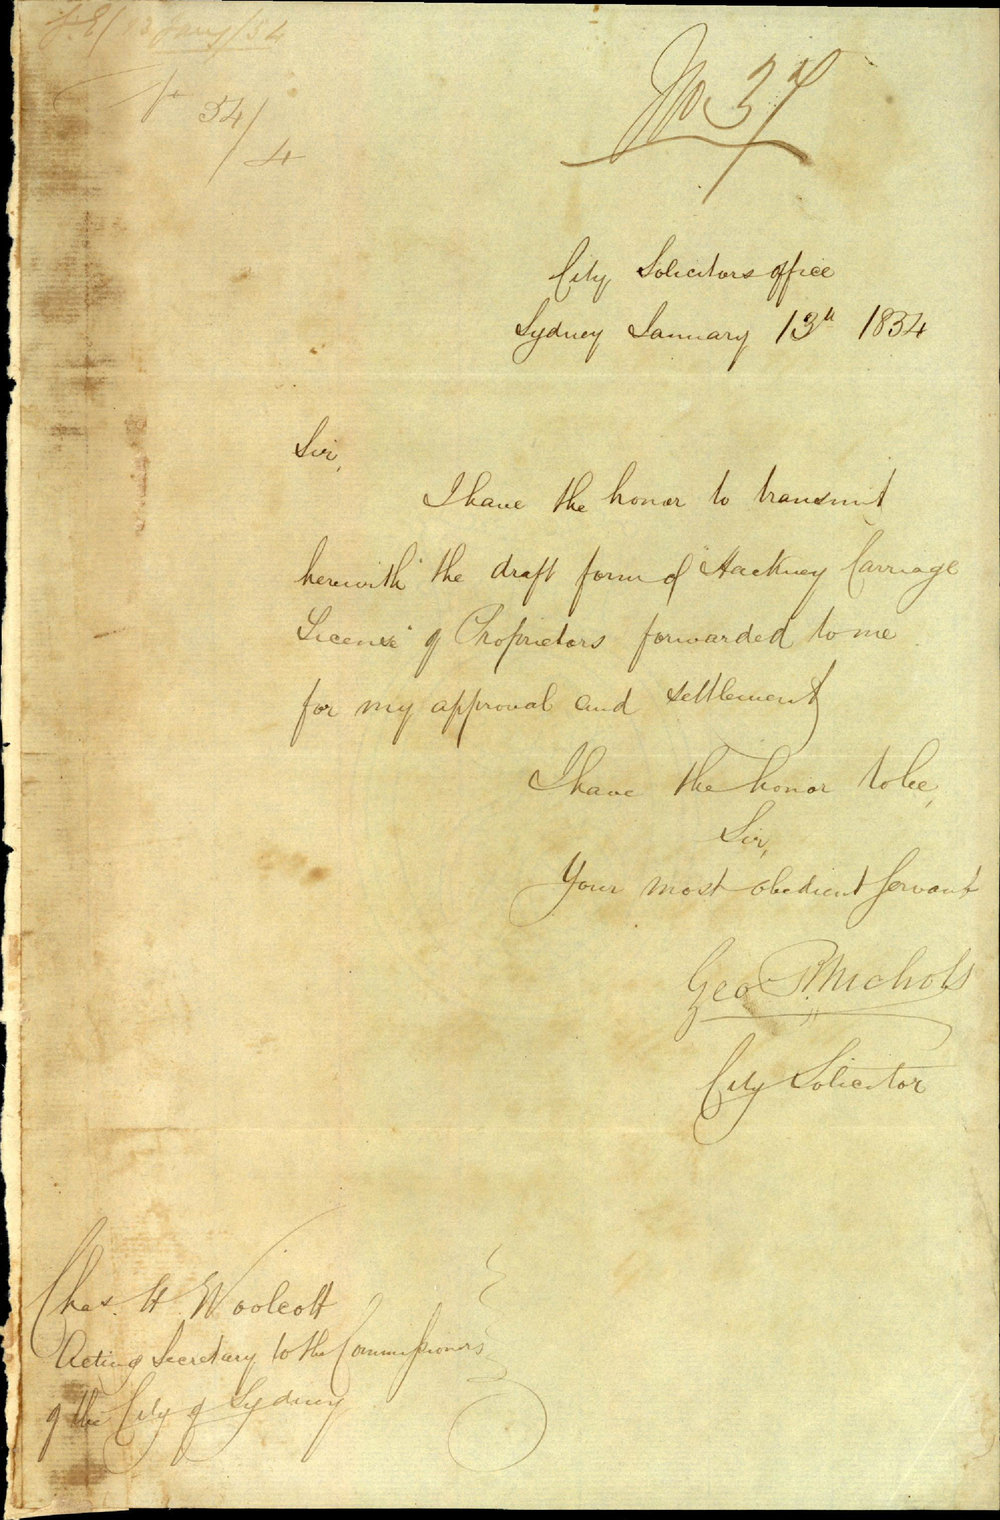 13 Jany/54
54/4
No 37
City Solicitors office
Sydney January 13th 1854
Sir,
I have the honor to transmit
herewith the draft form of "Hackney Carriage
License" of Proprietors forwarded to me
for my approval and settlement
I have the honor to be,
Sir,
Your most obedient Servant
Geo R Nichols
City Solicitor
Chas. H. Woolcott
Acting Secretary to the Commissioners
of the City of Sydney